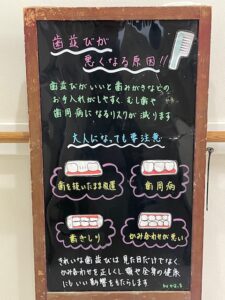 歯並びが
悪くなる原因!!
歯並びがいいと歯みがきなどの
お手入れがしやすく、むし歯や
歯周病になるリスクが減ります
大人になっても要注意
歯を抜いたまま放置
歯周病
歯ぎしり
かみ合わせが悪い
きれいな歯並びは見た目だけでなく
かみ合わせを正しくし、顎や全身の健康
にもいい影響をもたらします